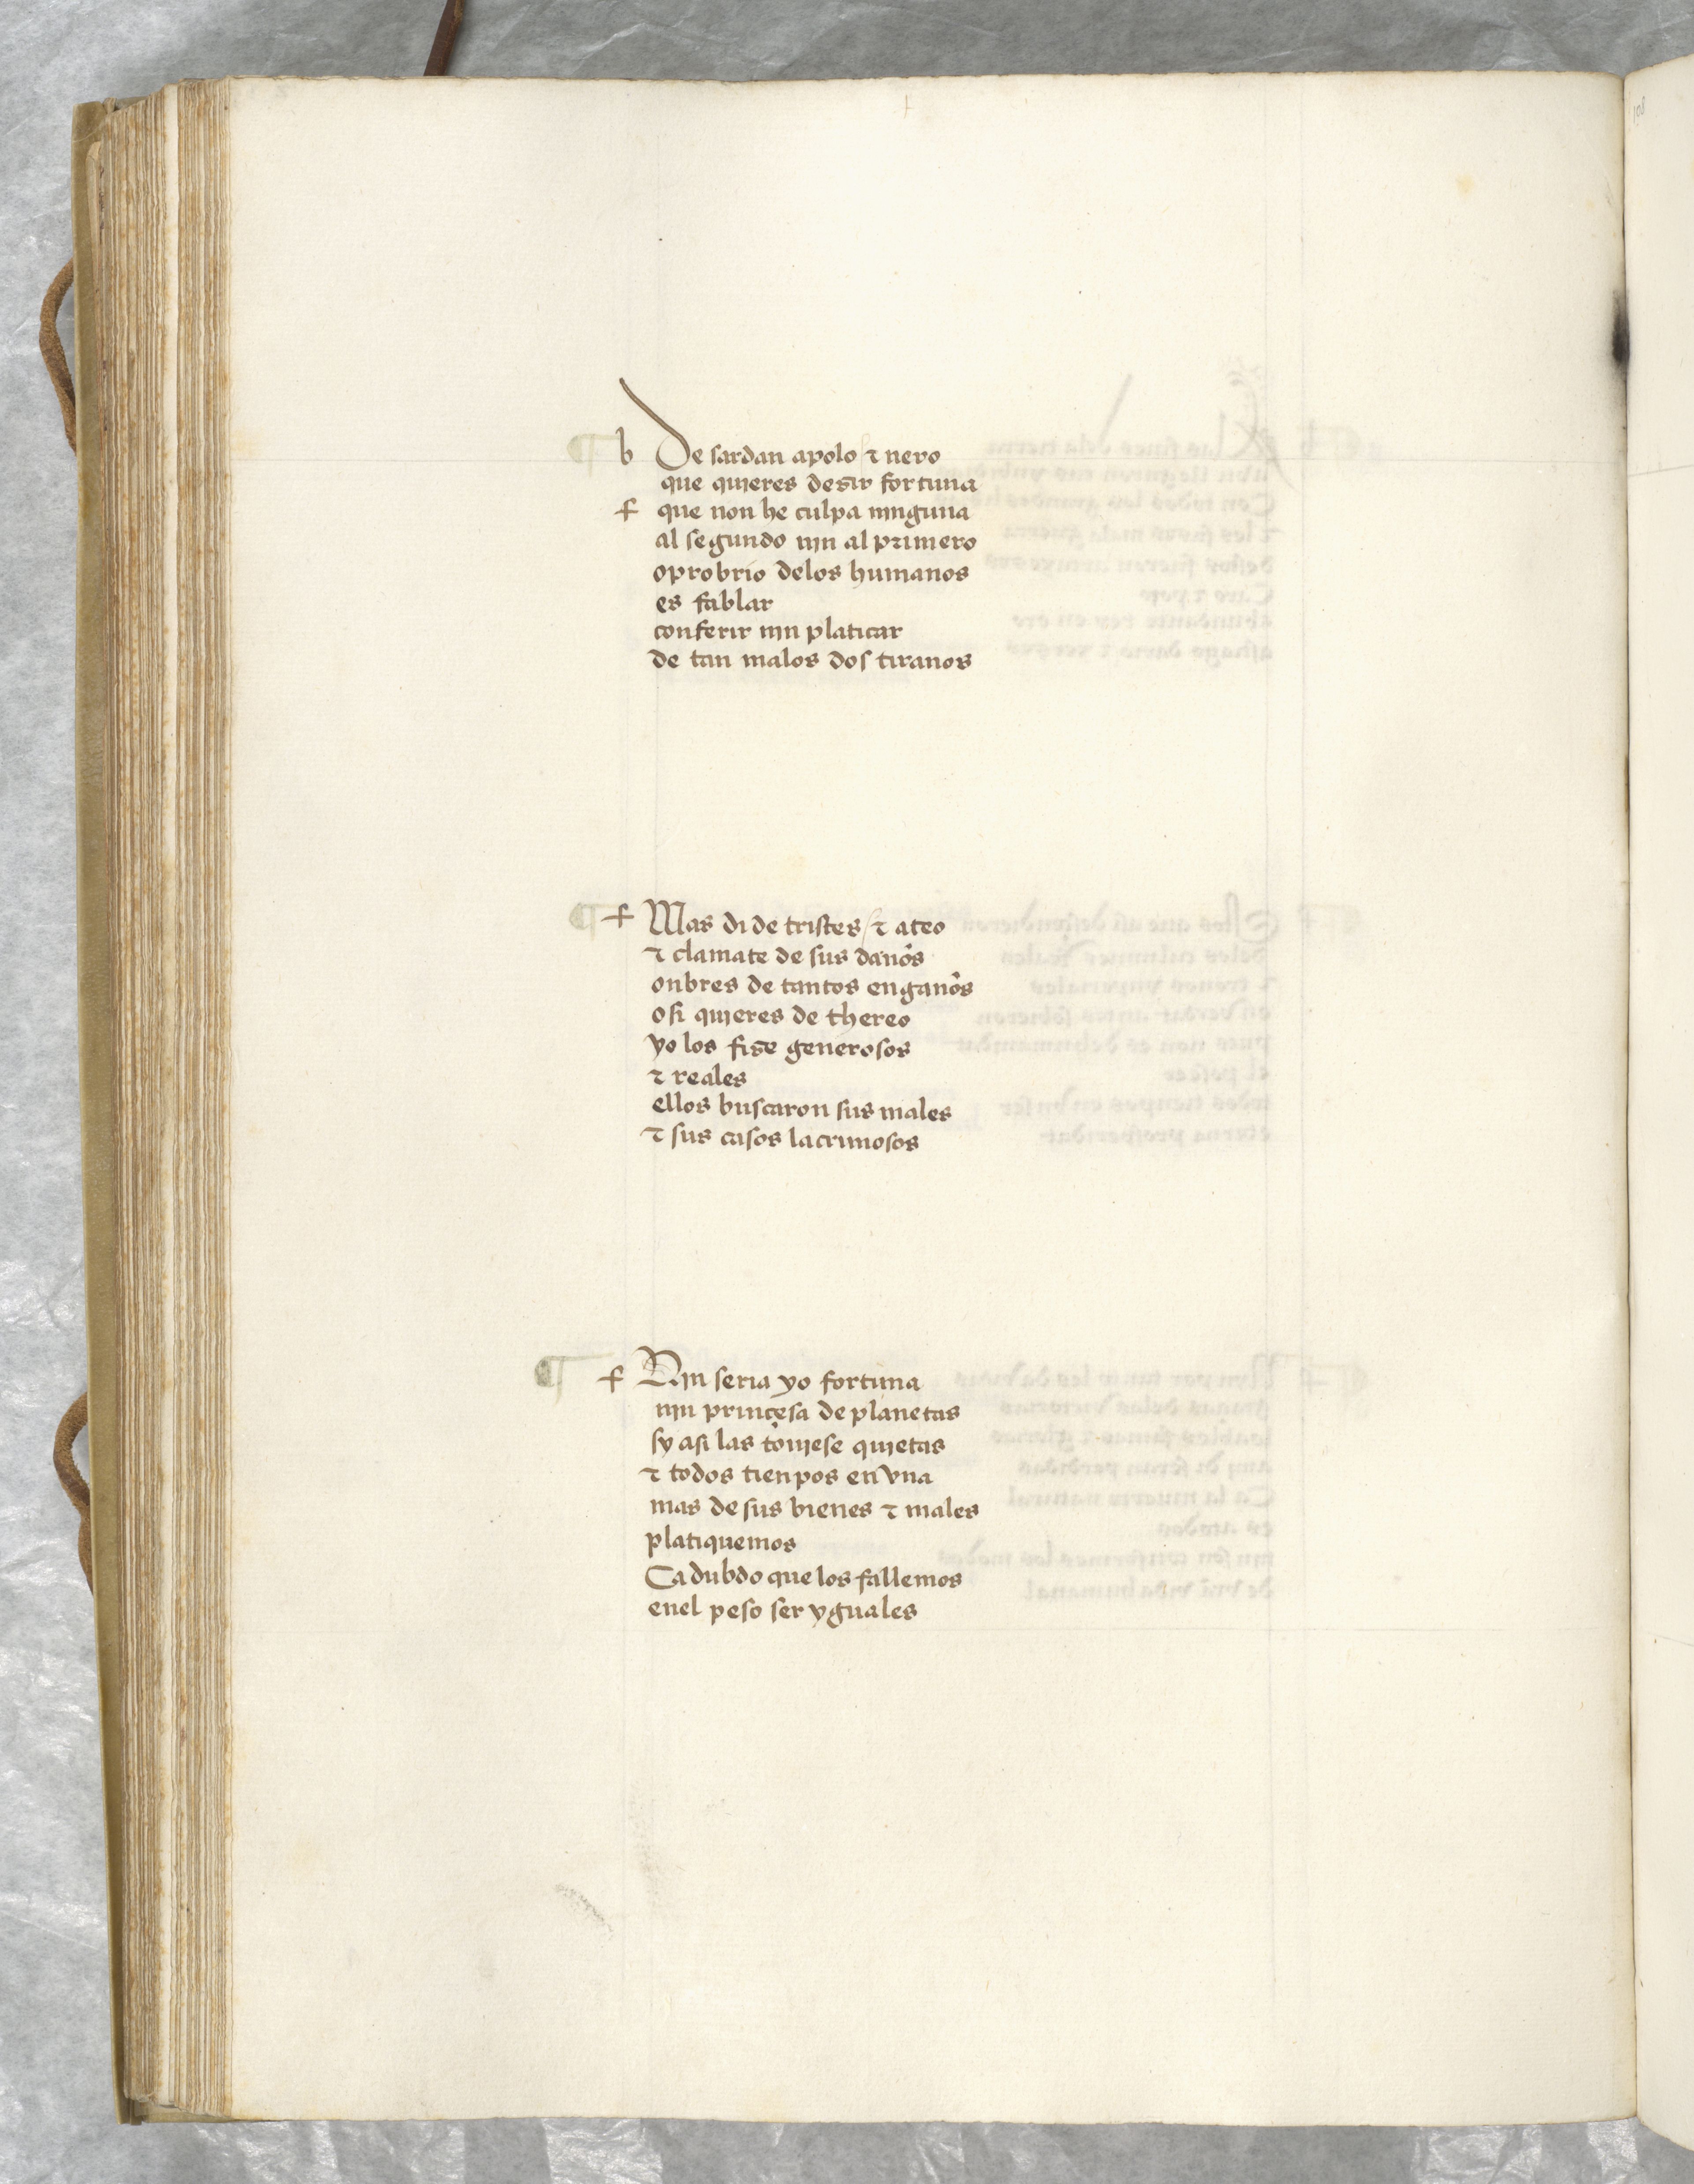 b De sardan apolo / ⁊ nero
que quieres desir fortuna
f que non he culpa ninguna
al segundo nin al primero
oprobrio delos humanos
es fablar
conferir nin platicar
de tan malos dos tiranos
f Mas di de tristes / ⁊ ateo
⁊ clamate de sus danõs
onbres de tantos enganõs
osi quieres de thereo
yo los fise generosos
⁊ reales
ellos buscaron sus males
⁊ sus casos lacrimosos
f Nin seria yo fortuna
nin prinçesa de planetas
sy asi las touiese quietas
⁊ todos tienpos en vna
mas de sus bienes ⁊ males
platiquemos
Ca dubdo que los fallemos
enel peso ser yguales
108